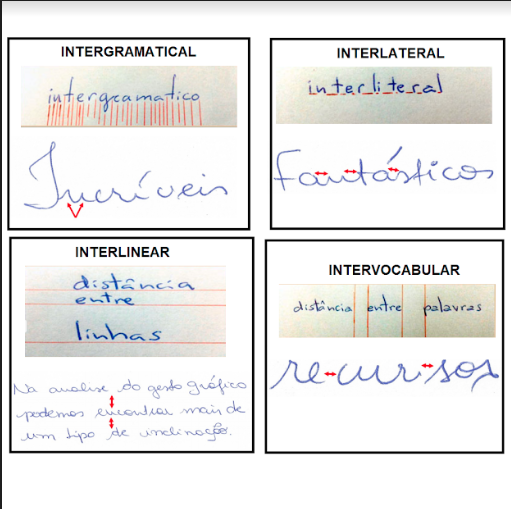 INTERGRAMATICAL
intergramatico
Incríveis
INTERLATERAL
interliteral
Fantásticos
INTERLINEAR
distância
entre
linhas
Na analise do gesto gráfico
podemos encontrar mais de
um tipo de inclinação.
INTERVOCABULAR
distância entre palavras
recursos